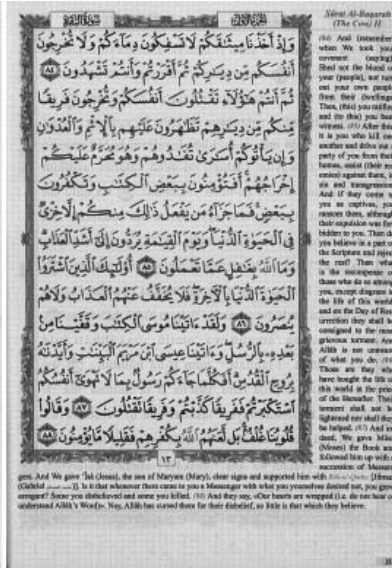 وَإِذْ أَخَذْنَا مِيثَٰقَكُمْ لَا تَسْفِكُونَ دِمَآءَكُمْ وَلَا تُخْرِجُونَ
أَنفُسَكُم مِّن دِيَٰرِكُمْ ثُمَّ أَقْرَرْتُمْ وَأَنتُمْ تَشْهَدُونَ ٨٤
ثُمَّ أَنتُمْ هَٰٓؤُلَآءِ تَقْتُلُونَ أَنفُسَكُمْ وَتُخْرِجُونَ فَرِيقًا
مِّنكُم مِّن دِيَٰرِهِمْ تَظَٰهَرُونَ عَلَيْهِم بِٱلْإِثْمِ وَٱلْعُدْوَٰنِ
وَإِن يَأْتُوكُمْ أُسَٰرَىٰ تُفَٰدُوهُمْ وَهُوَ مُحَرَّمٌ عَلَيْكُمْ
إِخْرَاجُهُمْ أَفَتُؤْمِنُونَ بِبَعْضِ ٱلْكِتَٰبِ وَتَكْفُرُونَ
بِبَعْضٍ فَمَا جَزَآءُ مَن يَفْعَلُ ذَٰلِكَ مِنكُمْ إِلَّا خِزْىٌ
فِى ٱلْحَيَوٰةِ ٱلدُّنْيَا وَيَوْمَ ٱلْقِيَٰمَةِ يُرَدُّونَ إِلَىٰٓ أَشَدِّ ٱلْعَذَابِ
وَمَا ٱللَّهُ بِغَٰفِلٍ عَمَّا تَعْمَلُونَ ٨٥ أُو۟لَٰٓئِكَ ٱلَّذِينَ ٱشْتَرَوُا۟
ٱلْحَيَوٰةَ ٱلدُّنْيَا بِٱلْءَاخِرَةِ فَلَا يُخَفَّفُ عَنْهُمُ ٱلْعَذَابُ وَلَا هُمْ
يُنصَرُونَ ٨٦ وَلَقَدْ ءَاتَيْنَا مُوسَى ٱلْكِتَٰبَ وَقَفَّيْنَا مِنۢ
بَعْدِهِۦ بِٱلرُّسُلِ وَءَاتَيْنَا عِيسَى ٱبْنَ مَرْيَمَ ٱلْبَيِّنَٰتِ وَأَيَّدْنَٰهُ
بِرُوحِ ٱلْقُدُسِ أَفَكُلَّمَا جَآءَكُمْ رَسُولٌۢ بِمَا لَا تَهْوَىٰٓ أَنفُسُكُمُ
ٱسْتَكْبَرْتُمْ فَفَرِيقًا كَذَّبْتُمْ وَفَرِيقًا تَقْتُلُونَ ٨٧ وَقَالُوا۟
قُلُوبُنَا غُلْفٌۢ بَل لَّعَنَهُمُ ٱللَّهُ بِكُفْرِهِمْ فَقَلِيلًا مَّا يُؤْمِنُونَ ٨٨
١٣
Sûrat Al-Baqarah
(The Cow) II
(84) And (remember)
when We took your
covenant (saying):
Shed not the blood of
your people), nor turn
out your own people
from their dwellings.
Then, (this) you ratified
and (to this) you bear
witness. (85) After this,
it is you who kill one
another and drive out a
party of you from their
homes, assist (their en-
emies) against them, in
sin and transgression.
And if they come to
you as captives, you
ransom them, although
their expulsion was for-
bidden to you. Then do
you believe in a part of
the Scripture and reject
the rest? Then what
is the recompense of
those who do so among
you, except disgrace in
the life of this world,
and on the Day of Res-
urrection they shall be
consigned to the most
grievous torment. And
Allâh is not unaware
of what you do. (86)
Those are they who
have bought the life of
this world at the price
of the Hereafter. Their
torment shall not be
lightened nor shall they
be helped. (87) And in-
deed, We gave Mûsâ
(Moses) the Book and
followed him up with a
succession of Messen-
gers. And We gave 'Îsâ (Jesus), the son of Maryam (Mary), clear signs and supported him with [Jibrael
(Gabriel )]. Is it that whenever there came to you a Messenger with what you yourselves desired not, you grew
arrogant? Some you disbelieved and some you killed. (88) And they say, «Our hearts are wrapped (i.e. do not hear or
understand Allâh's Word)». Nay, Allâh has cursed them for their disbelief, so little is that which they believe.